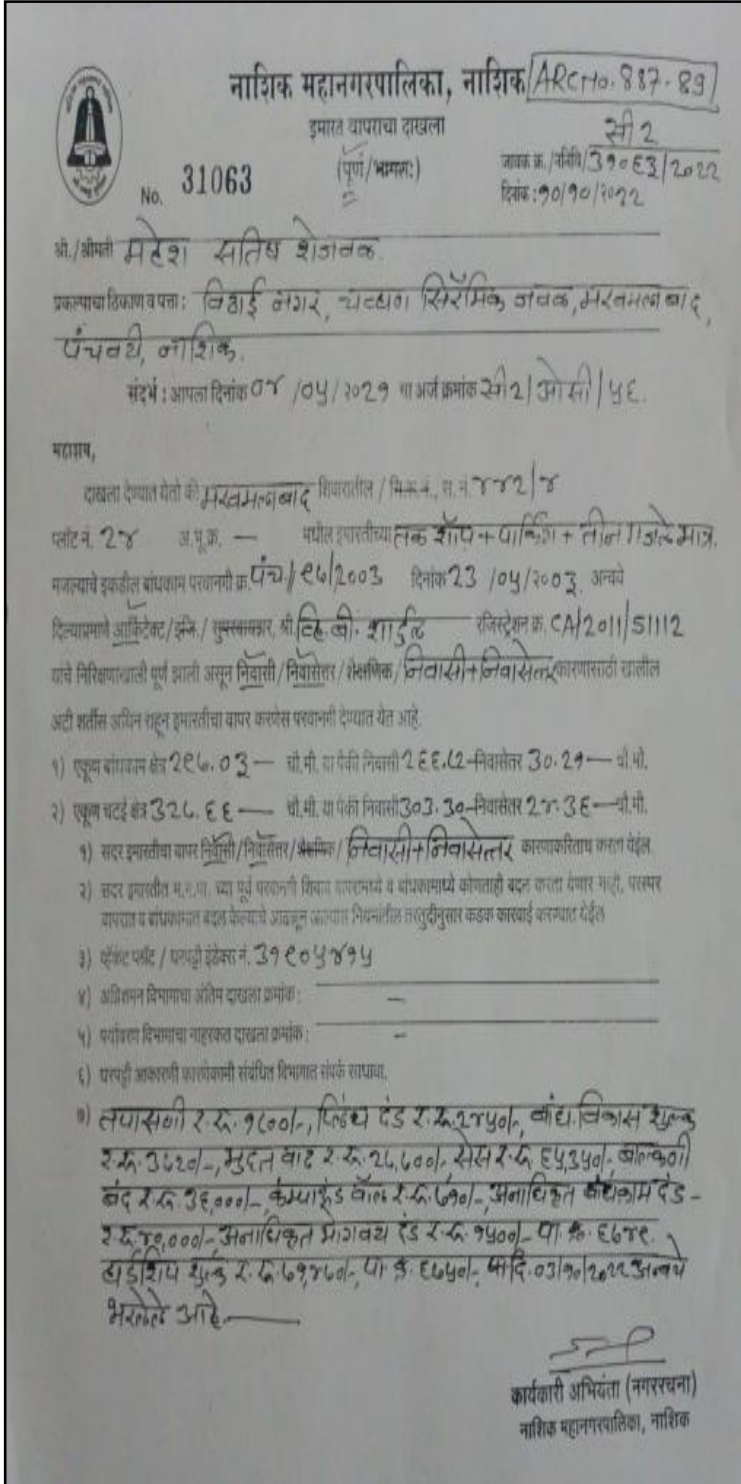 नाशिक महानगरपालिका, नाशिक ARC No. 887-89
इमारत वापराचा दाखला सी २
No. 31063 (पूर्ण/भागशः) जावक क्र./नरवि/३१०६३/२०२२
दिनांक : १०/१०/२०२२
श्री./श्रीमती महेश सतिष शेजवळ
प्रकल्पाचा ठिकाण व पत्ता : विठाई नगर, चव्हाण सिरॅमिक जवळ, मखमलाबाद,
पंचवटी, नाशिक.
संदर्भ : आपला दिनांक ०४/०५/२०२१ चा अर्ज क्रमांक सी२/ओसी/५६.
महाशय,
दाखला देण्यात येतो की मखमलाबाद शिवारातील / सि.स.नं., स.नं. ४४२/४
प्लॉट नं. २४ अ.भू.क्र. — मधील इमारतीच्या तळ शॉप + पार्किंग + तीन मजले मात्र.
मजल्याचे इकडील बांधकाम परवानगी क्र. पंच/९७/२००३ दिनांक २३/०५/२००३ अन्वये
दिल्याप्रमाणे आर्किटेक्ट/इंजि./ सुपरवायझर, श्री. व्हि.बी. शार्दुल रजिस्ट्रेशन क्र. CA/2011/51112
यांचे निरिक्षणाखाली पूर्ण झाली असून निवासी/निवासेत्तर/शैक्षणिक/निवासी+निवासेत्तर कारणासाठी खालील
अटी शर्तीस अधिन राहून इमारतीचा वापर करणेस परवानगी देण्यात येत आहे.
१) एकूण बांधकाम क्षेत्र २९७.०३ — चौ.मी. या पैकी निवासी २६६.८२ - निवासेतर ३०.२१ — चौ.मी.
२) एकूण चटई क्षेत्र ३२७.६६ — चौ.मी. या पैकी निवासी ३०३.३० - निवासेतर २४.३६ — चौ.मी.
१) सदर इमारतीचा वापर निवासी/निवासेत्तर/शैक्षणिक/ निवासी+निवासेत्तर कारणाकरिताच करता येईल.
२) सदर इमारतीत म.न.पा. च्या पूर्व परवानगी शिवाय वापरामध्ये व बांधकामाध्ये कोणताही बदल करता येणार नाही, परस्पर
वापरात व बांधकामात बदल केल्याचे आढळून आल्यास नियमांतील तरतुदीनुसार कडक कारवाई करण्यात येईल
३) व्हॅकंट प्लॉट / घरपट्टी इंडेक्स नं. ३१९०५४१५
४) अग्निशमन विभागाचा अंतिम दाखला क्रमांक : —
५) पर्यावरण विभागाचा नाहरकत दाखला क्रमांक : —
६) घरपट्टी आकारणी कारणेकामी संबंधित विभागात संपर्क साधावा.
७) तपासणी र.रू. १८००/-, प्लिंथ दंड र.रू. २४५०/-, बांध. विकास शुल्क
र.रू. ३८२०/-, मुदत वाढ र.रू. २८,८००/- सेस र.रू. ६५३५०/- बाल्कनी
बंद र.रू. ३६,०००/-, कम्पाऊंड वॉल र.रू. ७१०/-, अनाधिकृत बांधकाम दंड -
र.रू. ४०,०००/- अनाधिकृत भोगवटा दंड र.रू. १५००/- पा.क्र. ६७४९.
हार्डशिप शुल्क र.रू. ७१,४७०/-, पा.क्र. ६७५०/-, दि. ०३/१०/२०२२ अन्वये
भरलेले आहे. —
कार्यकारी अभियंता (नगररचना)
नाशिक महानगरपालिका, नाशिक